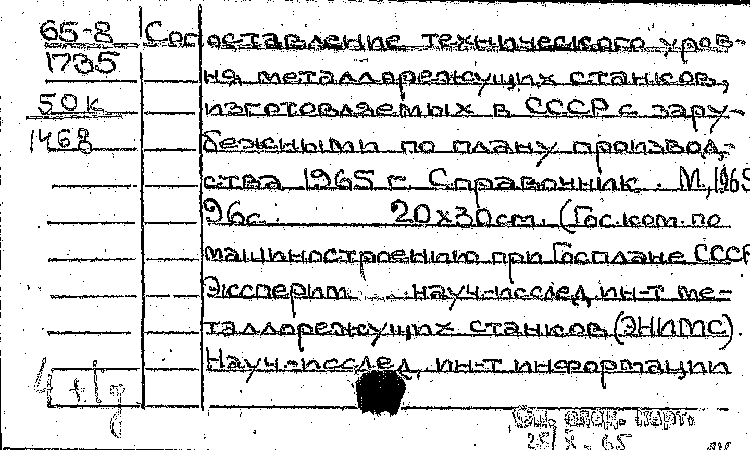 65-8
1735
50к
1468
Сопоставление технического уров-
ня металлорежущих станков,
изготовляемых в СССР с зару-
бежными по плану производ-
ства 1965 г. Справочник. М., 1965
96с. 20х30см. (Гос.ком. по
машиностроению при Госплане СССР
Эксперим. науч-исслед. ин-т ме-
таллорежущих станков (ЭНИМС).
Науч-исслед. ин-т информации
4+1д
25/X-65